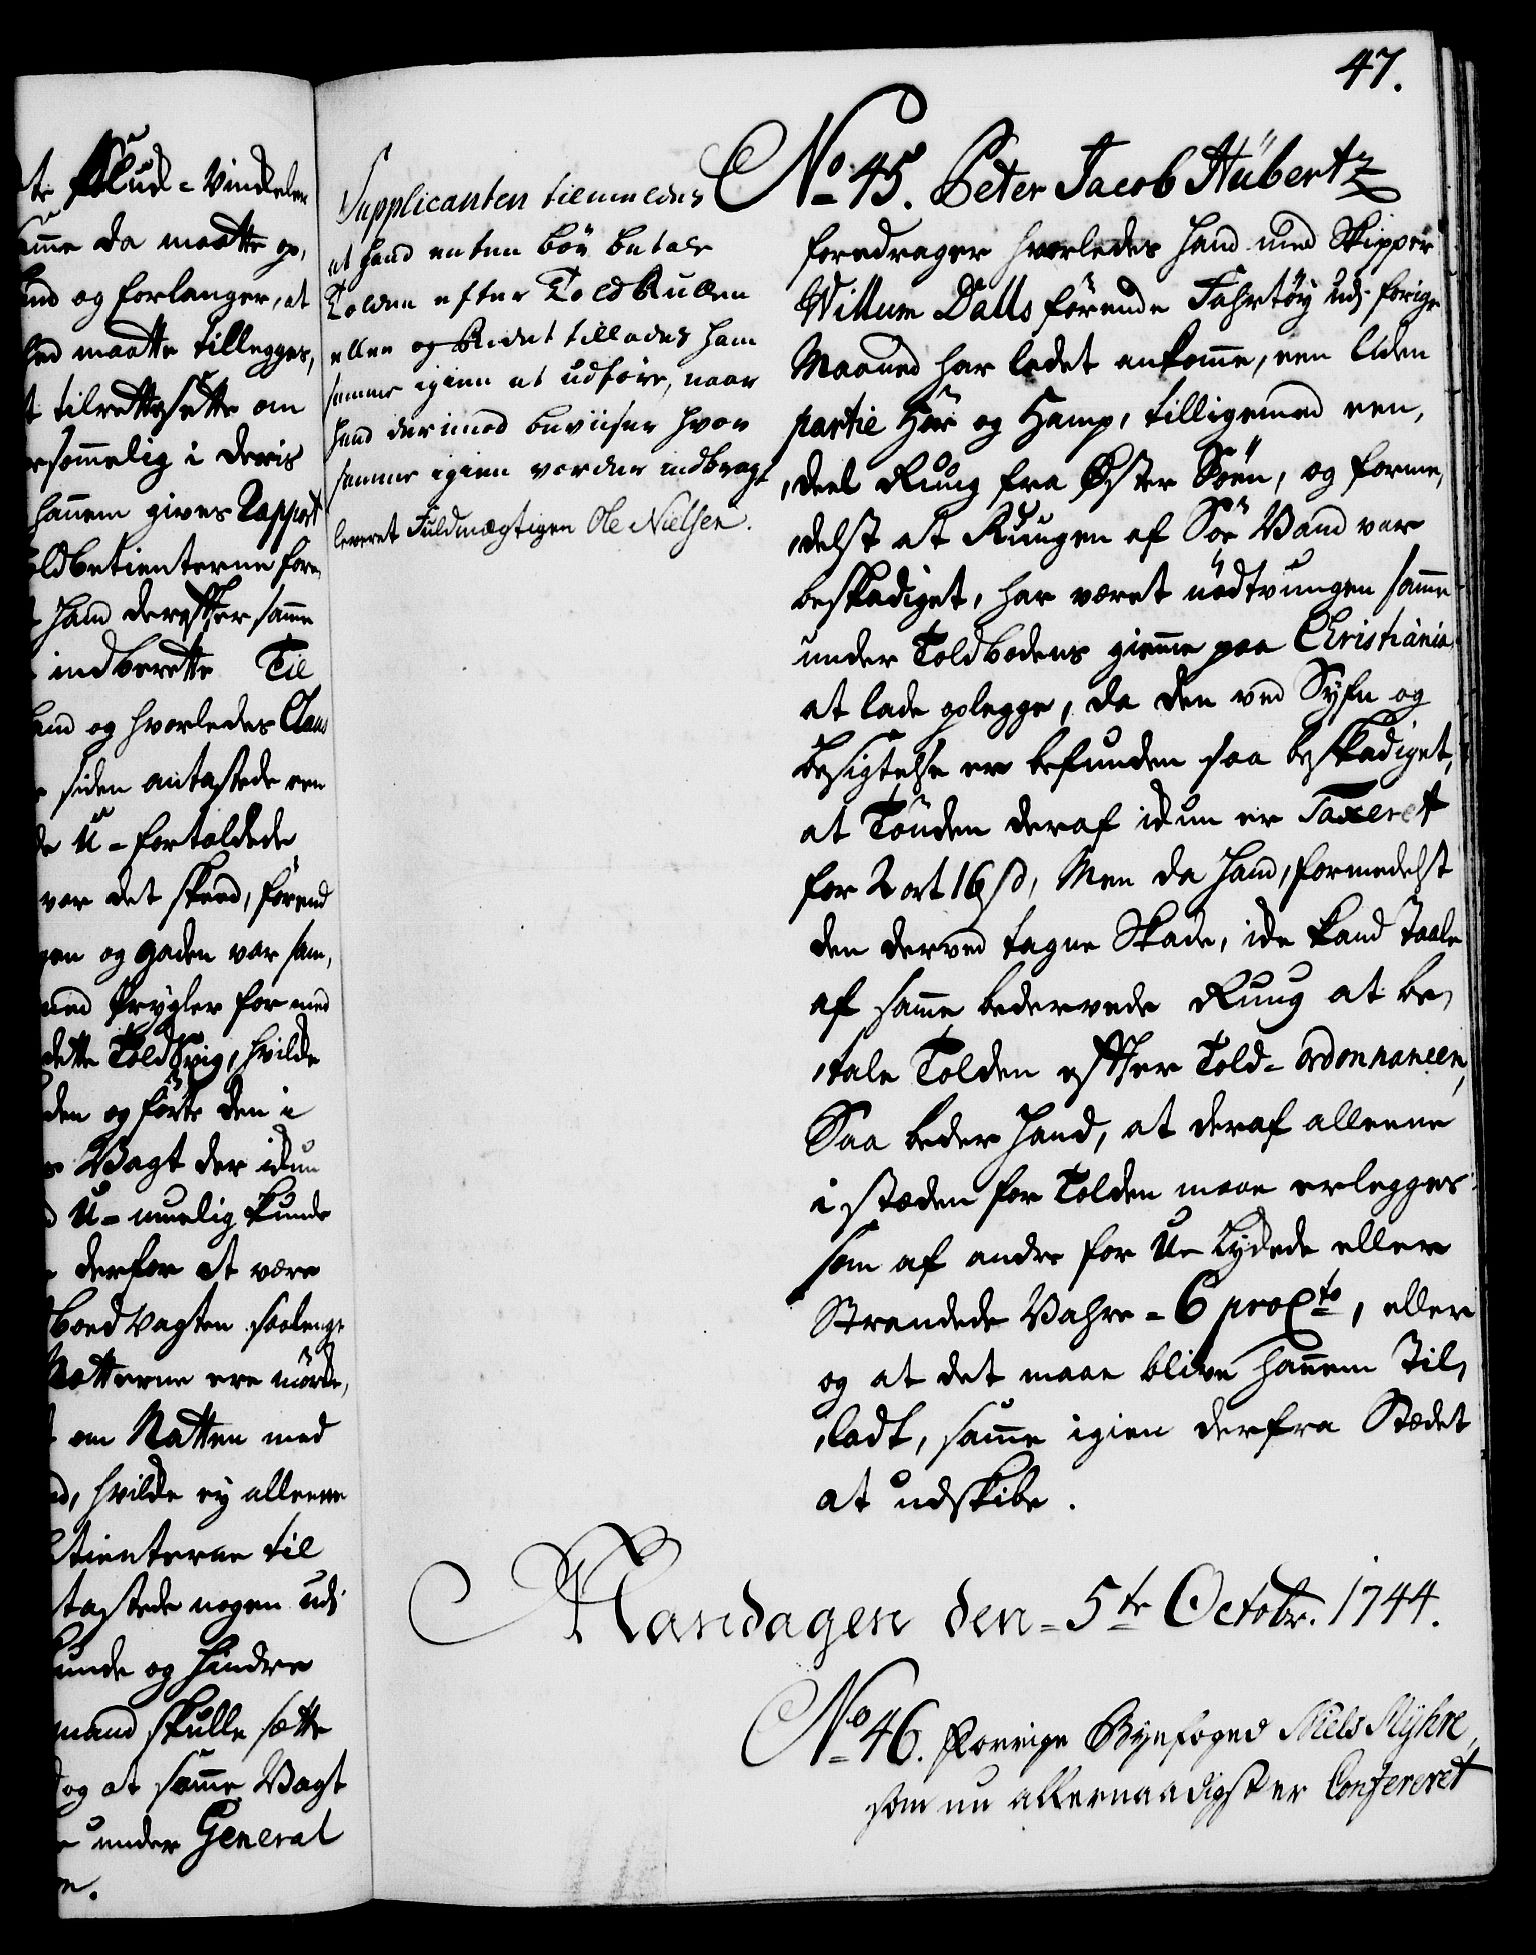 47.
te Flud-Vindeler
samme da maatte op,
and og forlanger, at
hed maatte tillegges,
at tilrettesette om
sømmelig i deris
hannem gives Rapport
oldbetienterne fore,
hand derefter samme
indberette Til
hand og hvorledes Claus
siden antastede een
de U-fortoldede
var det skeed, førend
gen og gaden var sam,
med Prygler for med
dette Toldsvig, hvilke
den og førte den i
Vagt der ickun
U-muelig kunde
derfor at være
boed Vagten saalenge
Nætterne ere mörke,
om Natten med
hvilke ey alleene
tienterne til
tastede nogen udj
kunde og hindre
mand skulle sætte
og at samme Vagt
under General
Supplicanten tilmeldes
at hand enten bör betale
Tolden efter Told Rullen
eller og Bliver tillades ham
samme igien at udføre, naar
hand derimod beviiser hvor
samme igien vorder indbragt
leveret Fuldmægtigen Ole Nielsen.
No 45. Peter Jacob Hübertz
foredrager hvorledes hand med Skipper
Willum Dalls förende Fahrtöy udj forige
Maaned har ladet ankomme, een liden
partie Hör og Hamp, tilligemed een,
deel Rug fra Øster Söen, og forme,
delst at Rugen af Söe Vand var
beskadiget, har været nödtvungen samme
under Toldbodens giemme paa Christiania
at lade oplegge, da den ved Syhn og
besigtelse er befunden saa beskadiget,
at Tönden deraf ickun er Taxeret
for 2 ort 16 s, Men da hand, formedelst
den derved tagne Skade, icke kand taale
af samme bedervede Rug at be,
tale Tolden efter Told-ordonnancen,
Saa beder hand, at deraf alleene
i stæden for Tolden maae erlegges
som af andre for U-Lydede eller
Strandede Vahre - 6 pro Cto, eller
og at det maae blive hannem Til,
ladt, samme igien derfra Stædet
at udskibe.
Mandagen den 5te Octobr. 1744.
No 46. Forrige Byefoged Niels Myhre,
som nu allernaadigst er Confereret